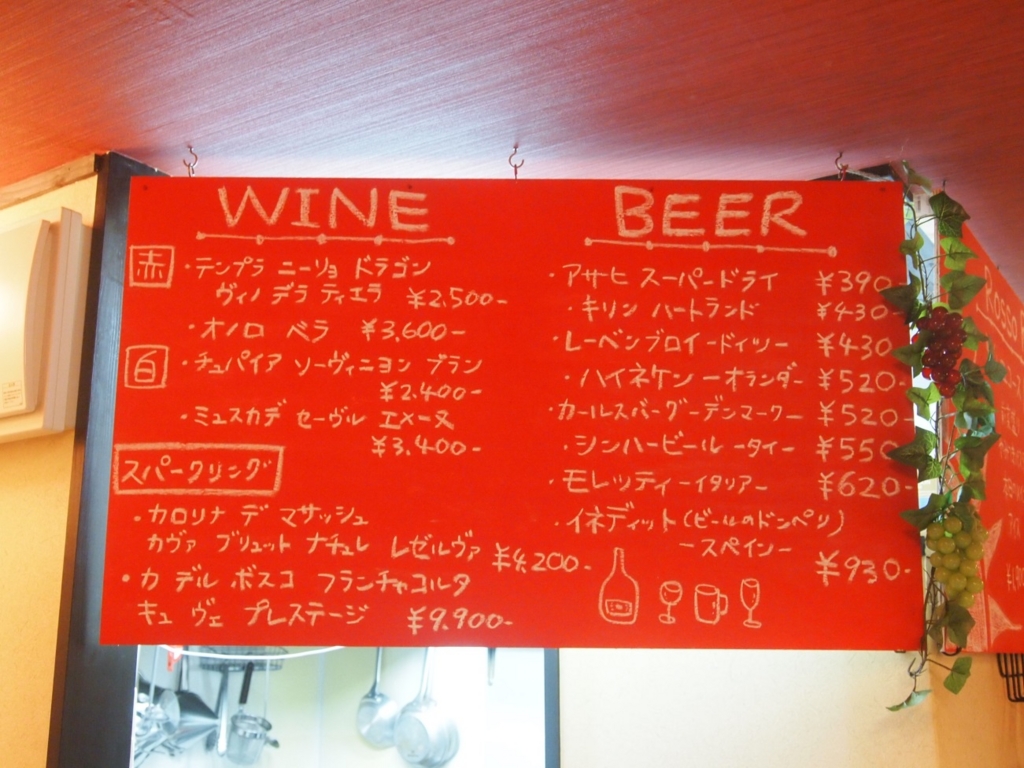 WINE
赤
・テンプラ ニーリョ ドラゴン
ヴィノ デラ ティエラ ¥2.500-
・オノロ ベラ ¥3,600-
白
・チュパイア ソーヴィニヨン ブラン
¥2.400-
・ミュスカデ セーヴル エメーヌ
¥3.400-
スパークリング
・カロリナ デ マサッシュ
カヴァ ブリュット ナチュレ レゼルヴァ ¥4,200-
・カ デル ボスコ フランチャコルタ
キュ ヴェ プレステージ ¥9.900-
BEER
・アサヒ スーパードライ ¥390-
・キリン ハートランド ¥430-
・レーベンブロイードイツー ¥430
・ハイネケン ーオランダー ¥520-
・カールスバーグーデンマークー ¥520
・シンハービール ータイー ¥550
・モレッティーイタリアー ¥620-
・イネディット(ビールのドンペリ)
ースペインー
¥930-
ROSSO